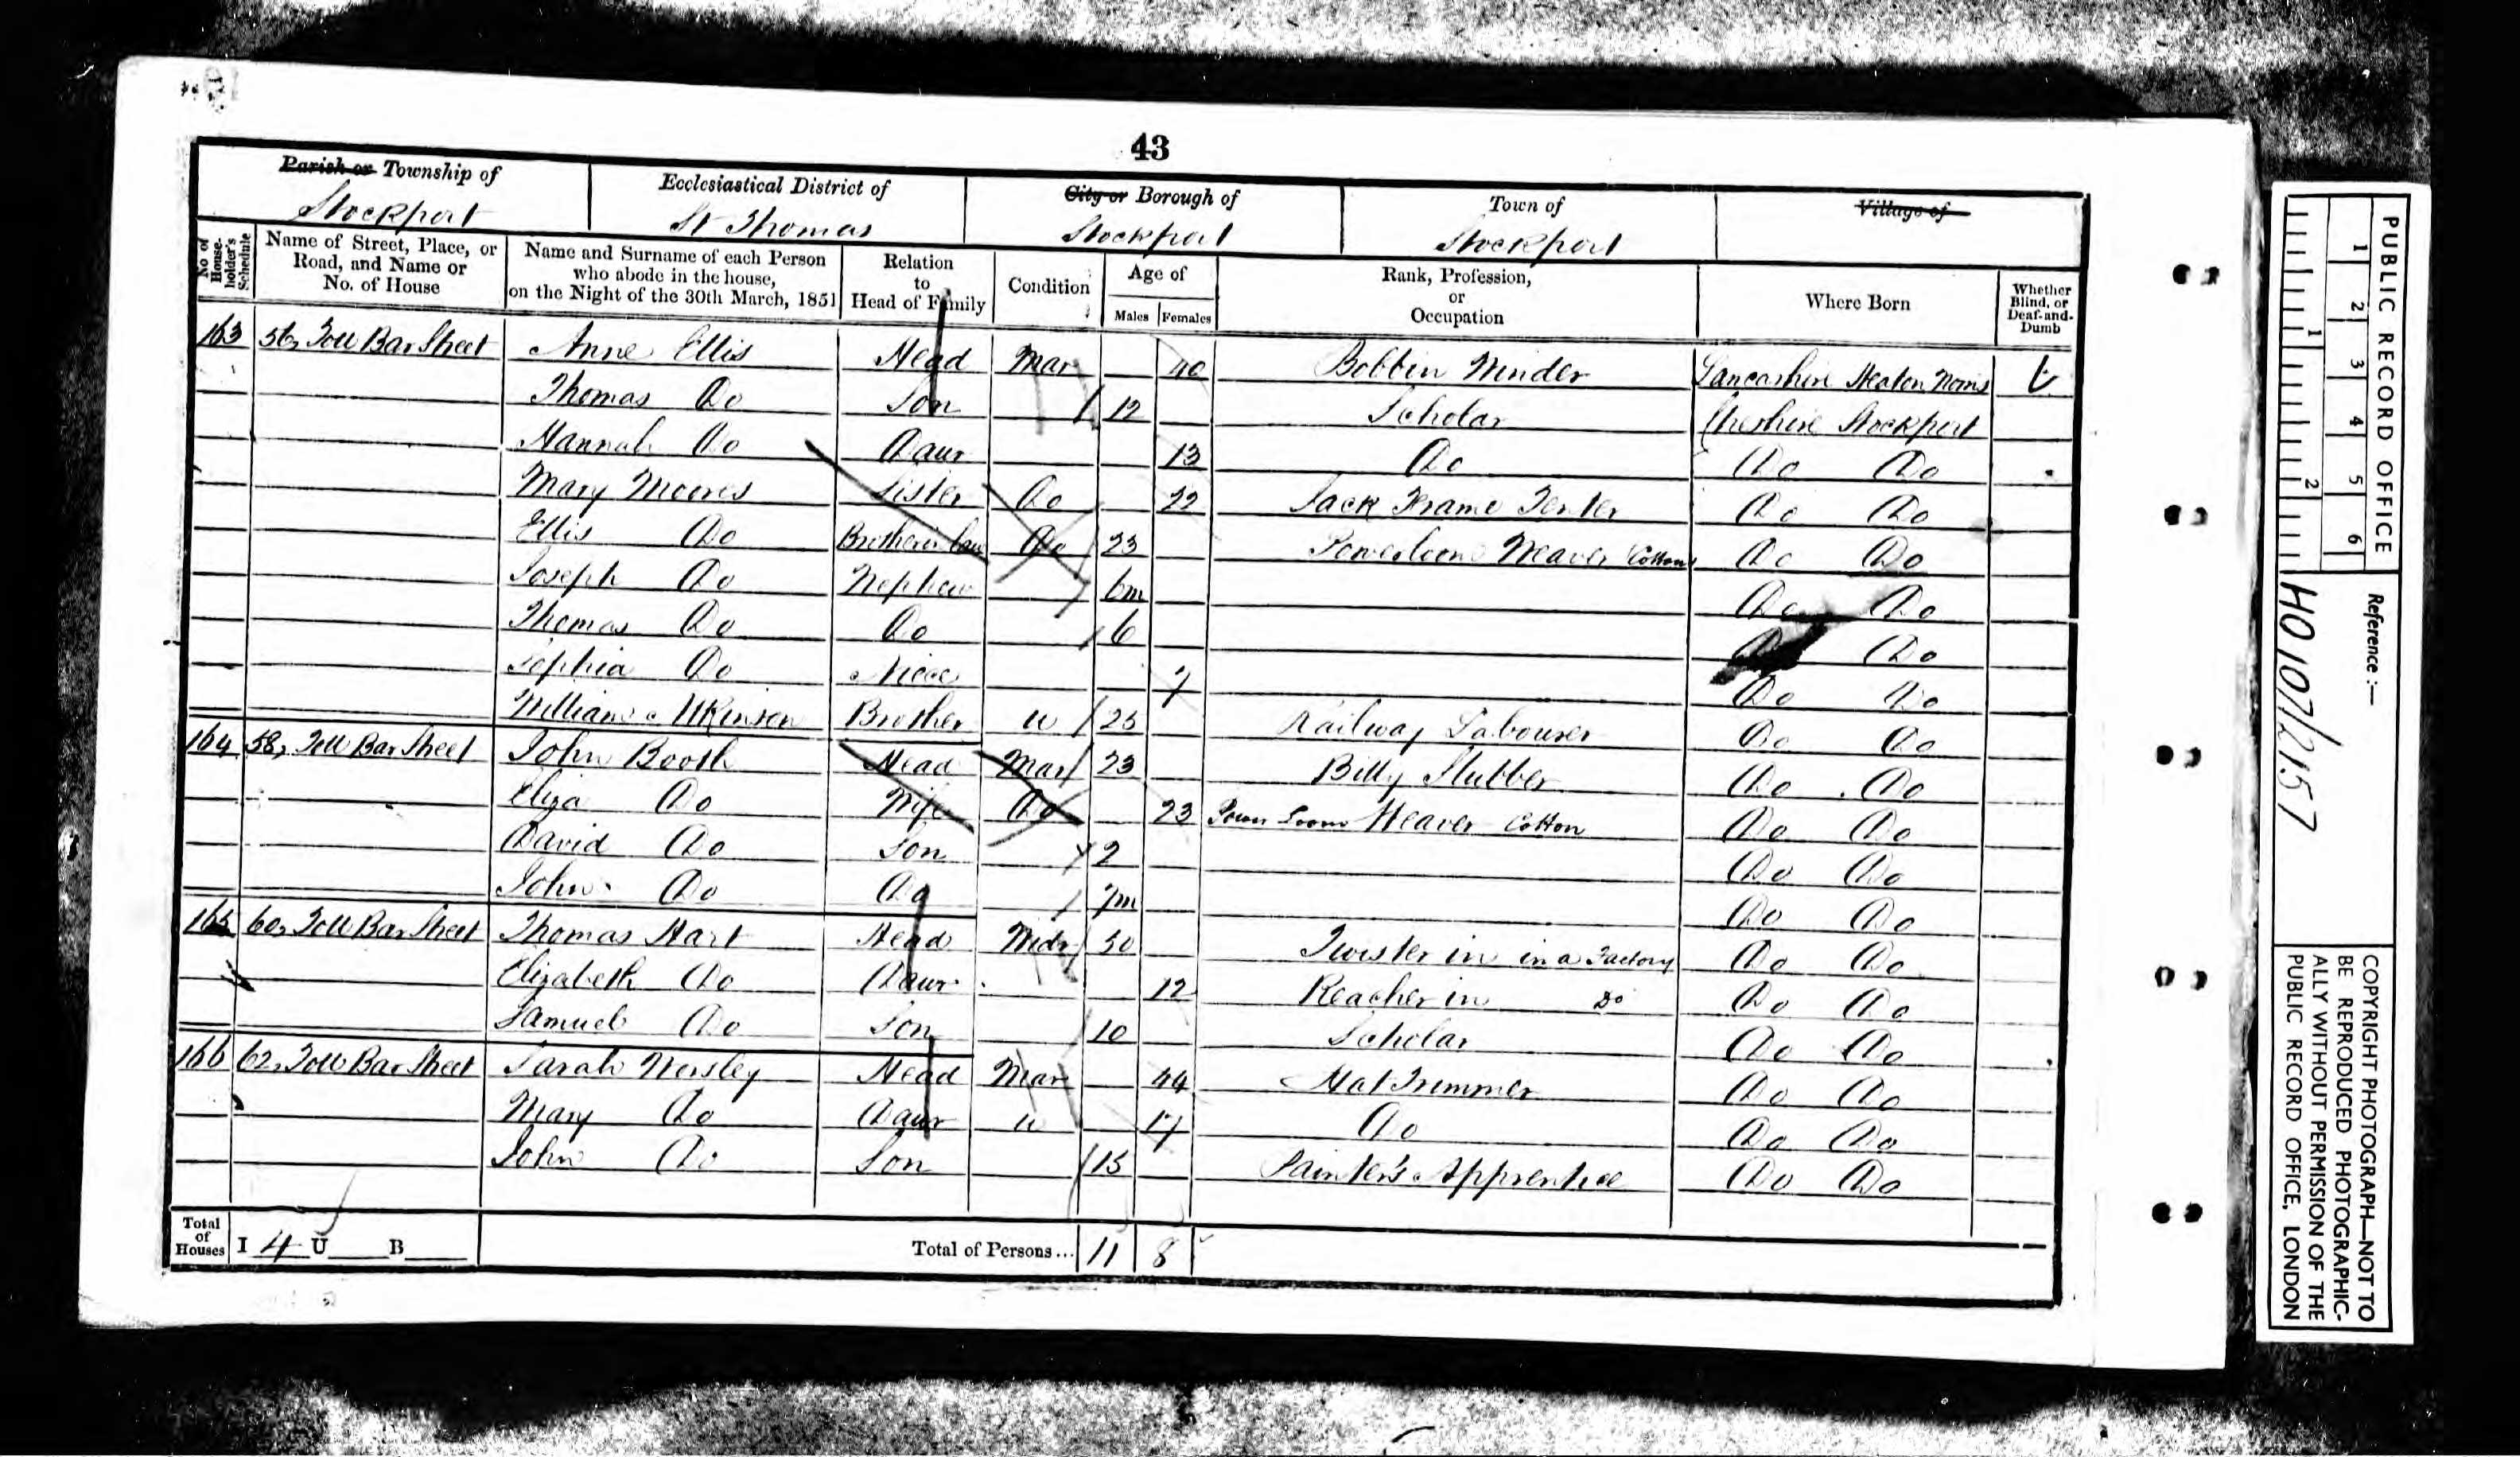 43
Parish or Township of Stockport
Ecclesiastical District of St Thomas
City or Borough of Stockport
Town of Stockport
Village of
No of House-holder's Schedule
Name of Street, Place, or Road, and Name or No. of House
Name and Surname of each Person who abode in the house, on the Night of the 30th March, 1851
Relation to Head of Family
Condition
Age of
Males Females
Rank, Profession, or Occupation
Where Born
Whether Blind, or Deaf-and-Dumb
163 56, Toll Bar Street Anne Ellis Head Mar 40 Bobbin Winder Lancashire Heaton Norris
Thomas Do Son 12 Scholar Cheshire Stockport
Hannah Do Daur 13 Do Do Do
Mary Moores Sister Do 22 Jack Frame Tenter Do Do
Ellis Do Brother in law Do 23 Powerloom Weaver Cotton Do Do
Joseph Do Nephew 6m Do Do
Thomas Do Do 6 Do Do
Sophia Do Niece 7 Do Do
William Atkinson Brother u 25 Railway Labourer Do Do
164 58, Toll Bar Street John Booth Head Mar 23 Billy Slubber Do Do
Eliza Do Wife Do 23 Power Loom Weaver Cotton Do Do
David Do Son 2 Do Do
John Do Do 7m Do Do
165 60, Toll Bar Street Thomas Hart Head Widr 50 Twister in in a Factory Do Do
Elizabeth Do Daur 12 Reacher in Do Do Do
Samuel Do Son 10 Scholar Do Do
166 62, Toll Bar Street Sarah Head Mar 44 Hat Trimmer Do Do
Mary Do Daur u 17 Do Do Do
John Do Son 15 Painter's Apprentice Do Do
Total of Houses I 4 U B Total of Persons... 11 8
PUBLIC RECORD OFFICE
1 2 3 4 5 6
1 2
Reference:—
HO 107/2157
COPYRIGHT PHOTOGRAPH—NOT TO
BE REPRODUCED PHOTOGRAPHIC-
ALLY WITHOUT PERMISSION OF THE
PUBLIC RECORD OFFICE, LONDON